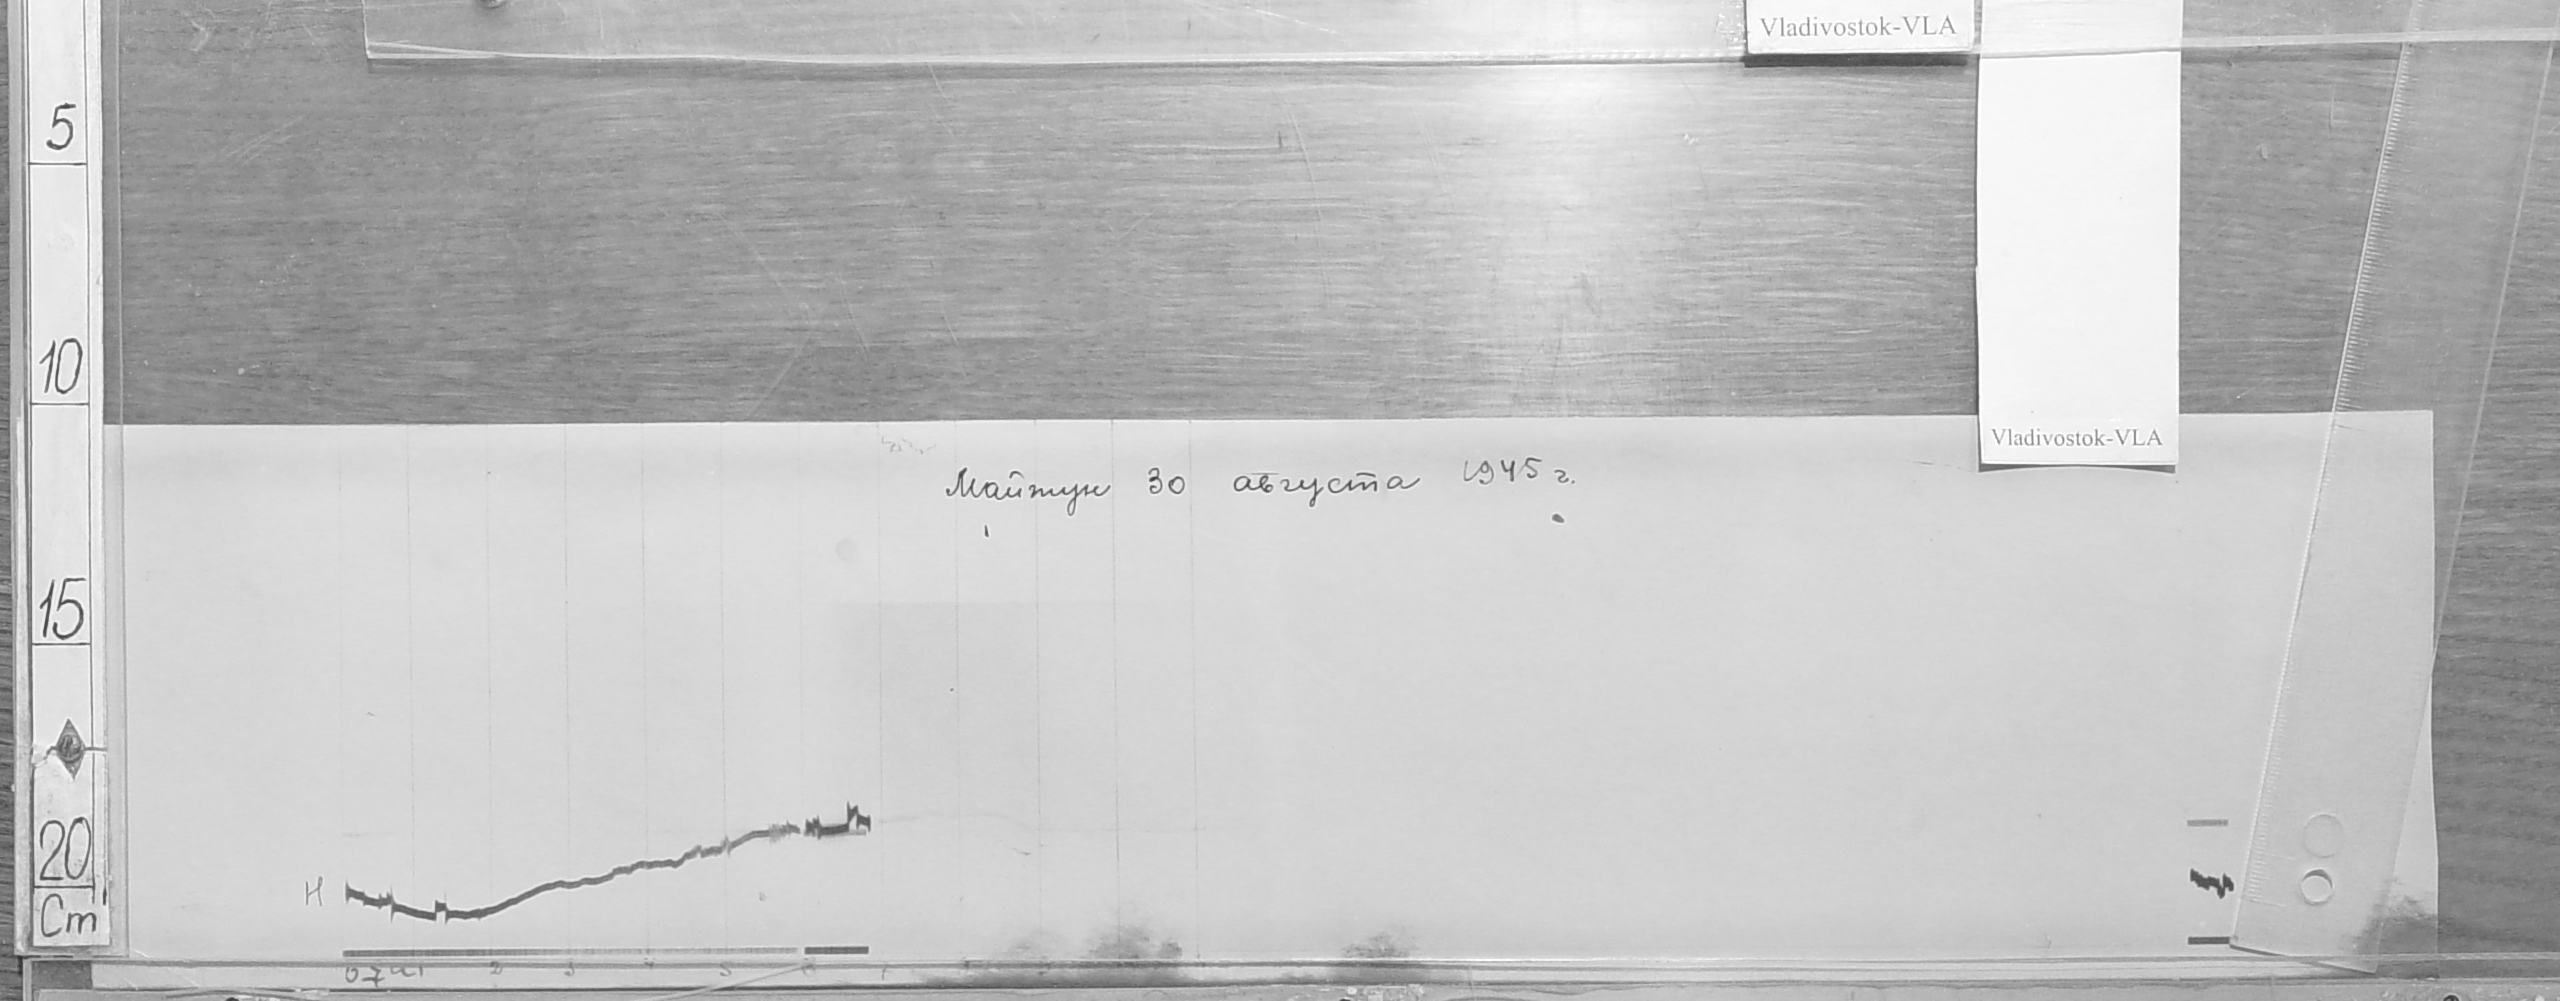 Vladivostok-VLA
5
10
Vladivostok-VLA
Майтун 30 августа 1945 г.
15
20
Н
Cm
1 2 3 4 5 6 7